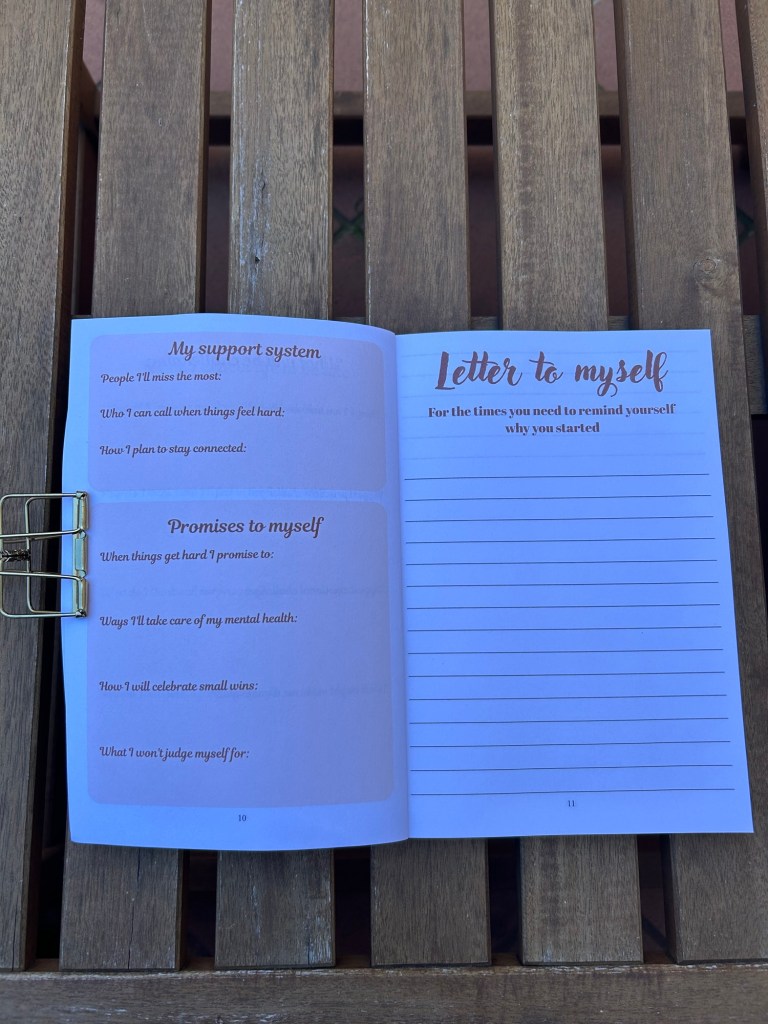 My support system
People I'll miss the most:
Who I can call when things feel hard:
How I plan to stay connected:
Promises to myself
When things get hard I promise to:
Ways I'll take care of my mental health:
How I will celebrate small wins:
What I won't judge myself for:
10
Letter to myself
For the times you need to remind yourself
why you started
11